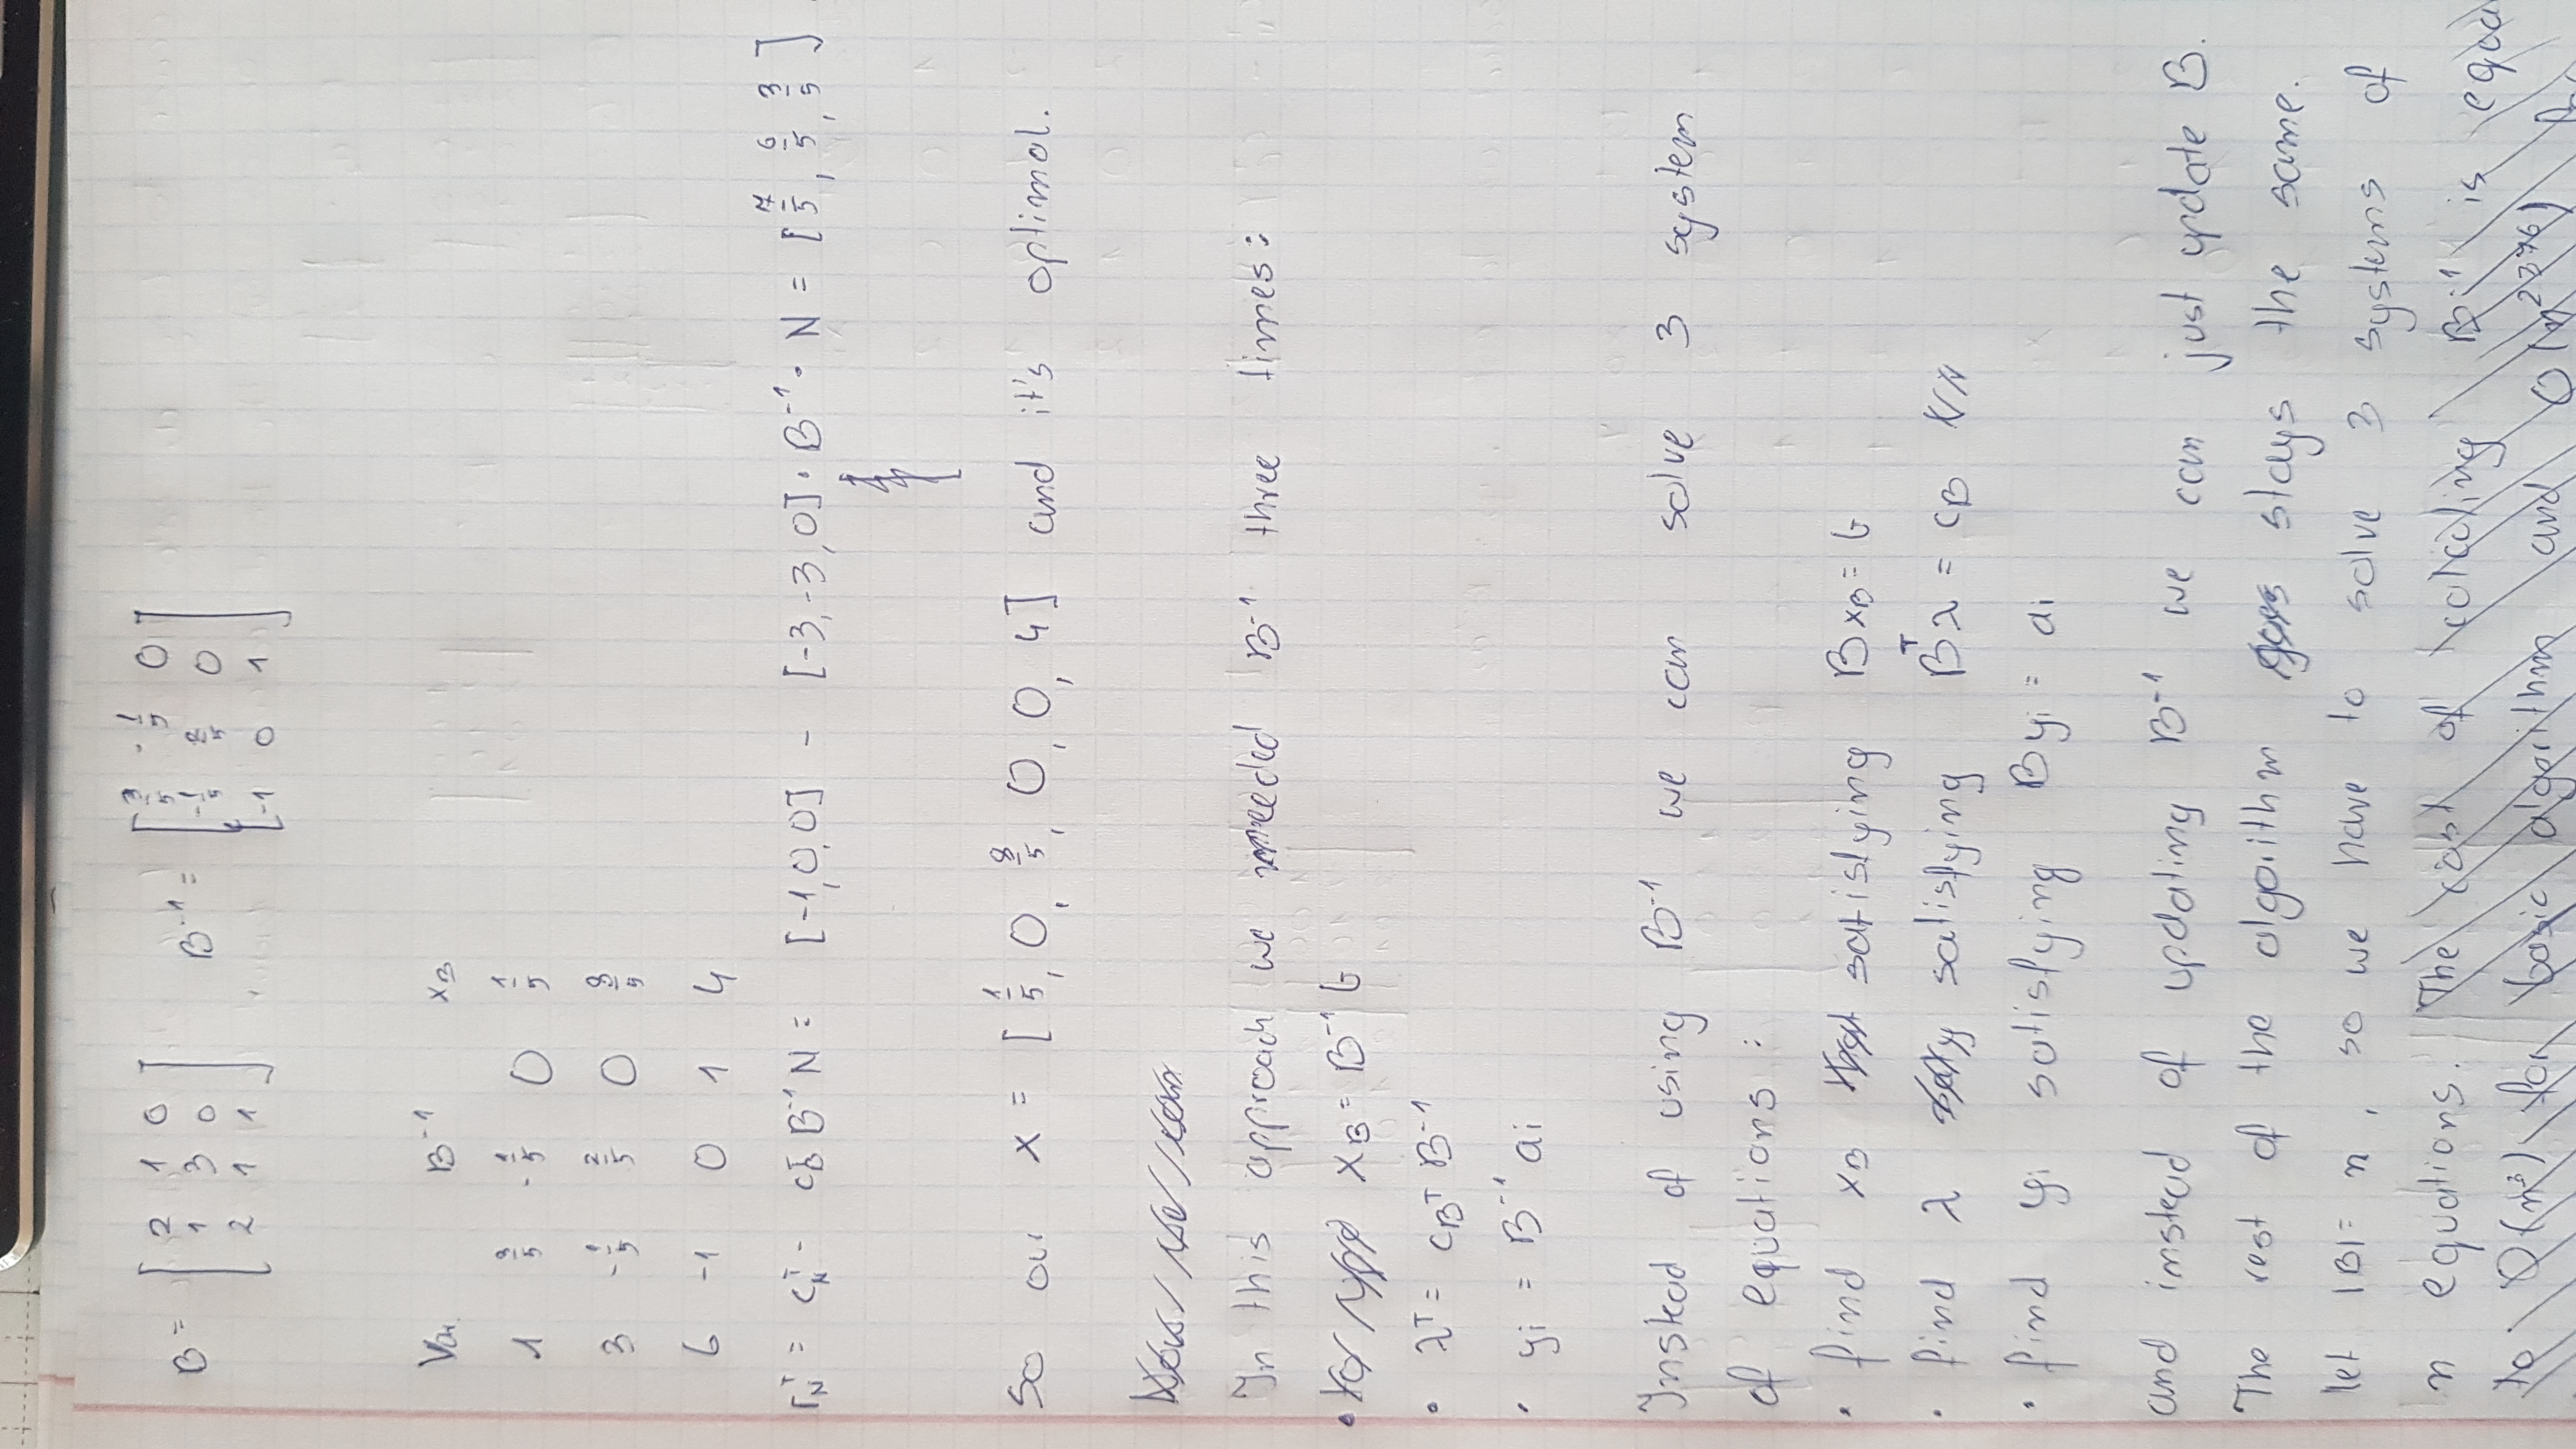 B = [ 2 1 0 ] B⁻¹ = [ 3/5 -1/5 0 ]
[ 1 3 0 ] [ -1/5 2/5 0 ]
[ 2 1 1 ] [ -1 0 1 ]
Var. B⁻¹ x_B
1 3/5 -1/5 0 1/5
3 -1/5 2/5 0 8/5
6 -1 0 1 4
r_N^T = c_N^T - c_B^T B⁻¹ N = [-1,0,0] - [-3,-3,0] · B⁻¹ · N = [7/5, 6/5, 3/5]
so our x = [1/5, 0, 8/5, 0, 0, 4] and it's optimal.
Now we can
In this approach we needed B⁻¹ three times:
• x_B = B⁻¹ b
• λ^T = c_B^T B⁻¹
• y_i = B⁻¹ a_i
Instead of using B⁻¹ we can solve 3 system
of equations :
• find x_B that satisfying B x_B = b
• find λ satisfying B^T λ = c_B
• find y_i satisfying B y_i = a_i
and instead of updating B⁻¹ we can just update B.
The rest of the algorithm goes stays the same.
let |B| = n , so we have to solve 3 systems of
n equations. The cost of B⁻¹ is equal
to O(n³) for basic algorithm and O(n^2.376)